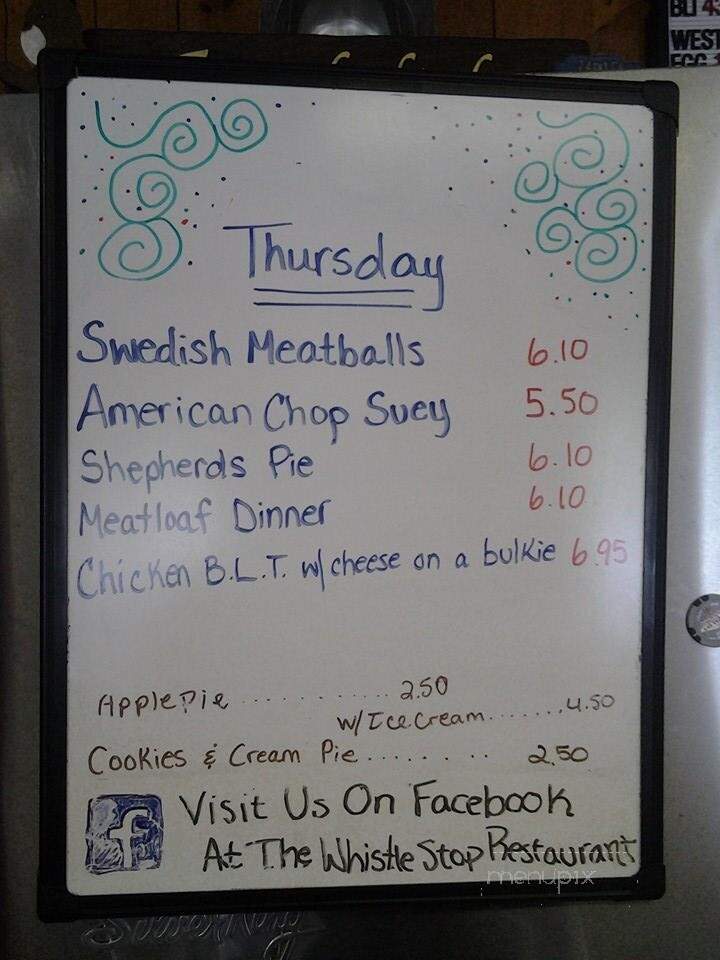 BLT 43
WEST
EGG
Thursday
Swedish Meatballs 6.10
American Chop Suey 5.50
Shepherds Pie 6.10
Meatloaf Dinner 6.10
Chicken B.L.T. w/ cheese on a bulkie 6.95
Apple Pie .............. 2.50
w/ Ice Cream.......4.50
Cookies & Cream Pie ........ 2.50
f Visit Us On Facebook
At The Whistle Stop Restaurant
menupix